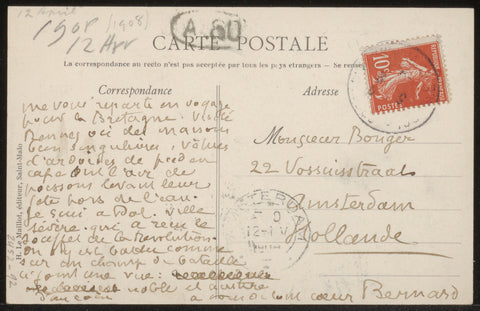 12 Avril
1908 (1908)
12 Avr
A. 60
CARTE POSTALE
La correspondance au recto n'est pas acceptée par tous les pays étrangers — Se rense
Correspondance
Adresse
10
me voici reparti en voyage
pour la Bretagne. Visité
Rennes ici des maisons
bien singulières, vêtues
d'ardoises de pied en
cape ont l'air de
poissons levant leur
tête hors de l'eau.
Je suis à Dol. Ville
sévère qui a reçu le
soufflet de la Révolution.
on y est comme
sur un champ de bataille
font une vue:
noble et
à vous de tout cœur Bernard
Monsieur Bonger
22 Vossiusstraat
Amsterdam
Hollande
J. H. Le Maillot, éditeur, Saint-Malo
AMSTERDAM